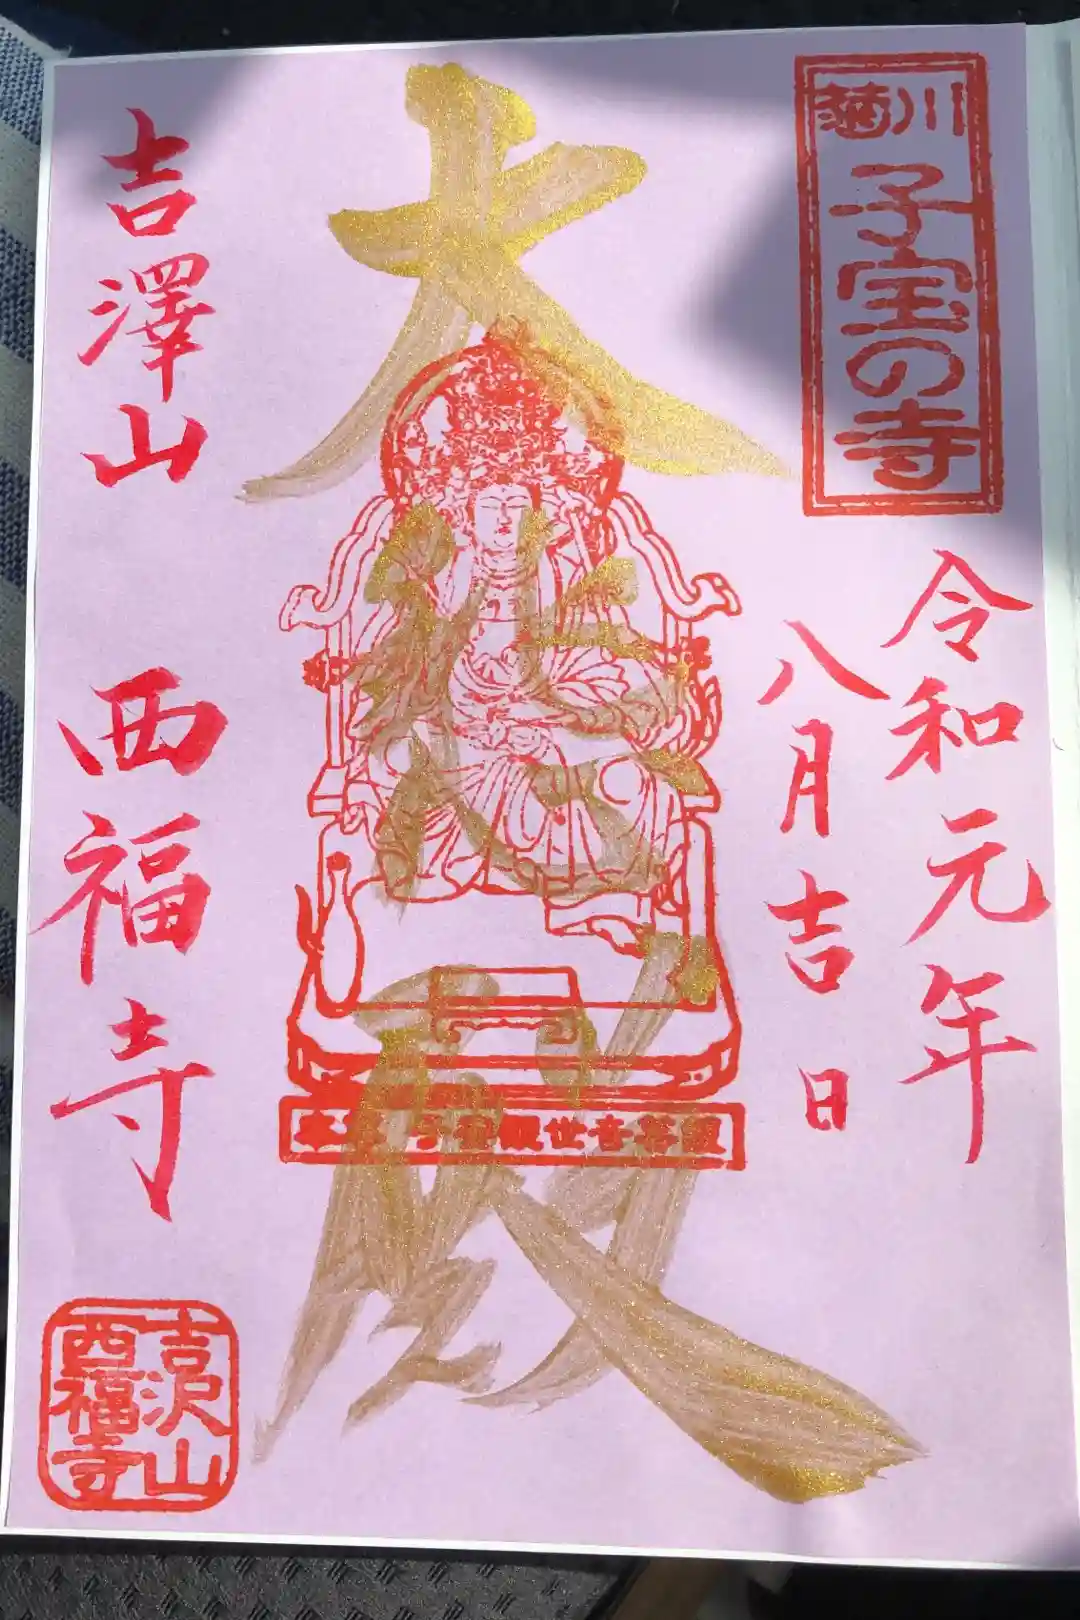 菊川
子宝の寺
令和元年
八月吉日
大悲殿
觀世音菩薩
吉澤山 西福寺
吉沢山
西福寺